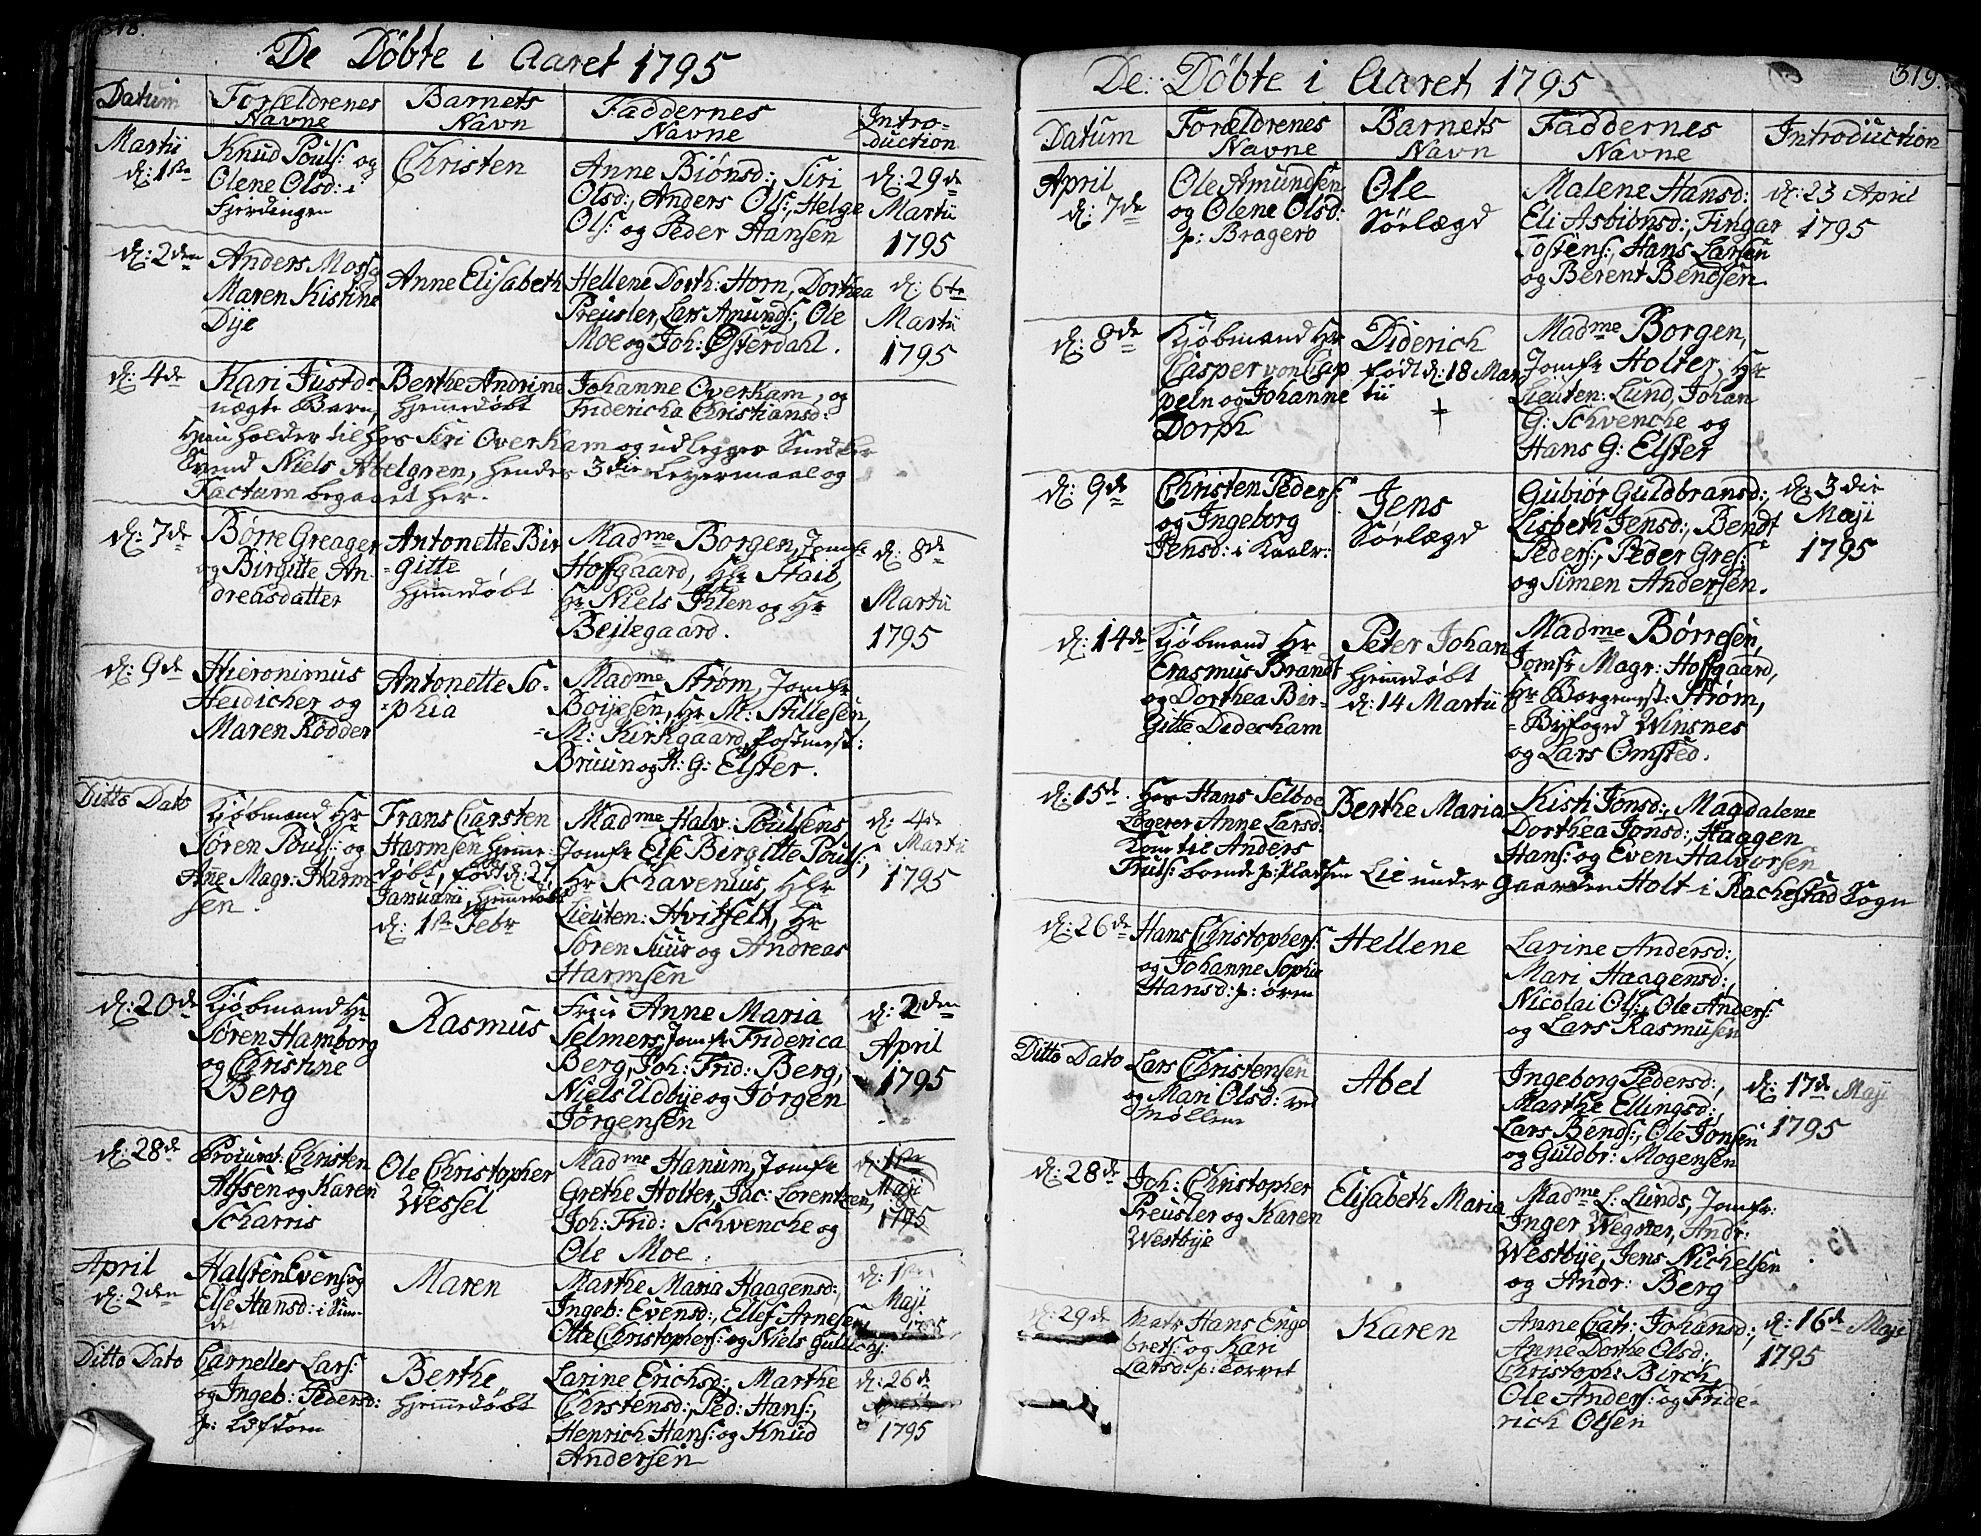 318.
De Döbte i Aaret 1795
Datum
Forældrenes
Navne
Barnets
Navn
Faddernes
Navne
Intro-
duction
Martii
d: 1ste
Knud Pouls: og
Olene Olsd: i
Fjerdingen
Christen
Anne Biönsd:, Siri
Olsd:, Anders Ols:, Helge
Ols: og Peder Hansen
d: 29de
Martii
1795
d: 2den
Anders Moss og
Maren Kistine
Dije
Anne Elisabeth
Hellene Dorth: Horn, Dorthea
Preusler, Lars Amunds:, Ole
Moe og Joh: Österdahl.
d: 6te
Martii
1795
d: 4de
Kari Justds
uægte Barn,
Berthe Andrine
Hjemmedöbt
Johanne Overkam, og
Fridericha Christiansd:
Hun holder til hos Siri Overkam og udlegger Snedker
Svend Niels Abelgren, hendes 3die Leyermaal og
Factum begaaet her.
d: 7de
Börre Greager
og Birgitte An-
dreasdatter
Antonette Bir
-gitte
Hjemmedöbt
Madme Borgen, Jomfr
Hofgaard, Hr Haib,
Hr Niels Ihlen og Hr
Beilegaard.
d: 8de
Martii
1795
d: 9de
Hieronimus
Heidicher og
Maren Rödder
Antonette So-
-phia
Madme Ström, Jomfr
Boijesen, Hr M: Stillesen,
-M: Kirkgaard, Postmest:
Bruun og H: G: Elster.
Ditto Dato
Kjöbmand Hr
Sören Pouls: og
Ane Magr: Harm
sen.
Frans Carsten
Harmsen Hjemme-
döbt, född d: 27
Januarii, Hjemmedöbt
d: 1ste Febr
Madme Halv: Poulsens,
Jomfr Else Birgitte Pouls:,
Hr Schavenius, Hr
Lieuten: Hvitfelt, Hr
Sören Suur og Andreas
Harmsen
d: 4de
Martii
1795
d: 20de
Kjöbmand Hr
Sören Hamborg
og Christine
Berg
Rasmus
Frue Anne Maria
Selmers, Jomfr Friderica
Berg, Joh: Frid: Berg,
Niels Udbye og Jörgen
Jörgensen
d: 2den
April
1795
d: 28de
Procurat: Christen
Alfsen og Karen
Scharris
Ole Christopher
Wessel
Madme Hanum, Jomfr
Grethe Holter, Jac: Lorentzen,
Joh: Frid: Schvencke og
Ole Moe.
d: 1ste
Maji
1795
April
d: 2den
Halsten Evens: og
Else Hansd: i Sun-
det
Maren
Marthe Maria Haagensd:,
Ingeb: Evensd:, Ellef Arnesen,
Otte Christophers: og Niels Gulbr:
d: 1ste
Maji
1795
Ditto Dato
Carnelles Lars:
og Ingeb: Pedersd:
p: Löftom
Berthe
Hjemmedöbt
Larine Erichsd:, Marthe
Christensd:, Ped: Hans:,
Henrich Hans: og Knud
Andersen
d: 26de
April
1795
319.
De Döbte i Aaret 1795
Datum
Forældrenes
Navne
Barnets
Navn
Faddernes
Navne
Introduction
April
d: 7de
Ole Amundsen
og Olene Olsd:
p: Bragerö
Ole
Sörlægd
Malene Hansd:
Eli Asbiönsd:, Fingar
Tostens:, Hans Larsen
og Berent Bendsen
d: 23 April
1795
d: 8de
Kjöbmand Hr
Casper von Cap
peln og Johanne
Dorph
Diderich
födt d: 18 Mar
tii
+
Madme Borgen,
Jomfr Holter, Hr
Lieuten: Lund, Johan
G: Schvencke og
Hans G: Elster
d: 9de
Christen Peders:
og Ingeborg
Jensd: i Kaalr:
Jens
Sörlægd
Gubiör Guldbransd:,
Lisbeth Jensd:, Bendt
Peders:, Peder Gres:
og Simen Andersen.
d: 3die
Maji
1795
d: 14de
Kjöbmand Hr
Erasmus Brandt
og Dorthea Bir-
gitte Dedekam
Peter Johan
Hjemmedöbt
d: 14 Martii
Madme Börresen,
Jomfr Magr: Hofgaard,
Hr Borgemest: Ström,
-Byfoged Winsnes
og Lars Omsted.
d: 15de
Hos Hans Selboe
Logerer Anne Larsd:
Kone til Anders
Truls: boende p: Pladsen Lie under Gaarden Holt i Rachestad Sogn
Berthe Maria
Kisti Jonsd:, Magdalene
Dorthea Jonsd:, Haagen
Hans: og Even Halvorsen
d: 26de
Hans Christophers:
og Johanne Sophie
Hansd: p: Ören
Hellene
Larine Andersd:,
Mari Haagensd:,
Nicolai Ols:, Ole Anders:
og Lars Rasmusen
Ditto Dato
Lars Christensen
og Mari Olsd: ved
Möllen
Abel
Ingeborg Pedersd:,
Marthe Ellingsd:,
Lars Bends:, Ole Jonsen
og Guldbr: Mogensen
d: 17de Maji
1795
d: 28de
Joh: Christopher
Preusler og Karen
Westbye
Elisabeth Maria
Madme L: Lunds, Jomfr:
Inger Wegner, Andr:
Westbye, Jens Nichelsen
og Andr: Berg
d: 29de
Matr Hans Enge
brets: og Kari
Larsd: p: Torvet
Karen
Anne Catr: Johansd:,
Anne Dorthe Olsd:
Christoph: Birch,
Ole Anders: og Fride-
rich Olsen
d: 16de Maji
1795